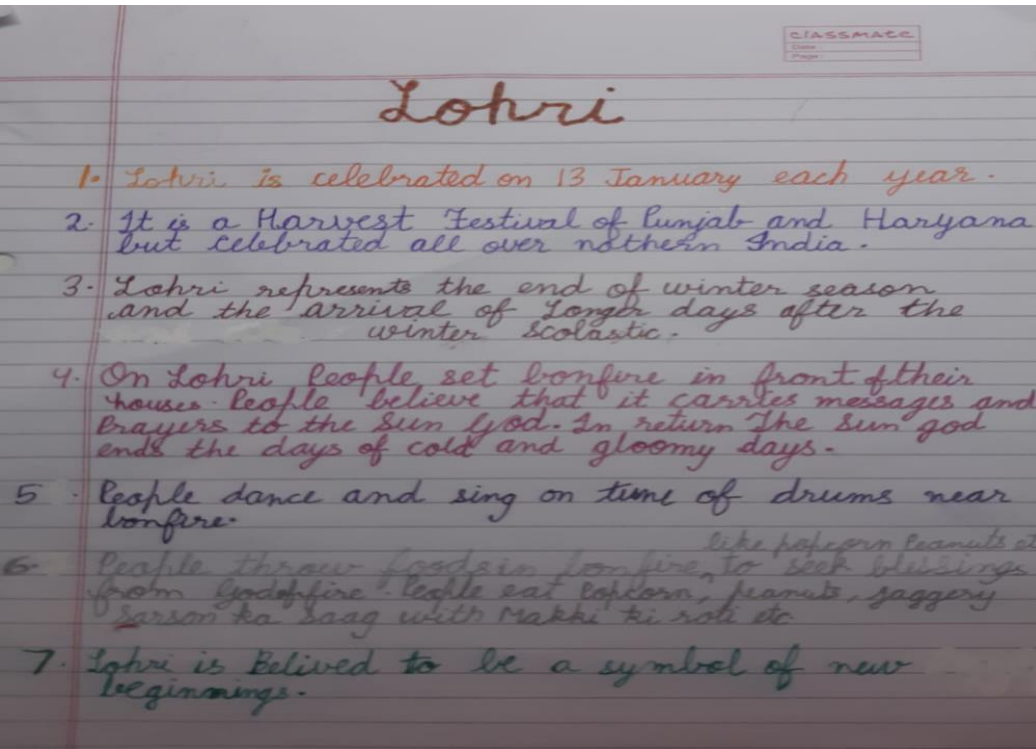 classmate
Date
Page
Lohri
1. Lohri is celebrated on 13 January each year.
2. It is a Harvest Festival of Punjab and Haryana
but celebrated all over nothern India.
3. Lohri represents the end of winter season
and the arrival of Longer days after the
winter scolastic.
4. On Lohri People set bonfire in front of their
houses. People believe that it carries messages and
Prayers to the Sun God. In return The Sun god
ends the days of cold and gloomy days.
5. People dance and sing on tune of drums near
bonfire.
like popcorn Peanuts et
6. People throw foods in bonfire, to seek blessings
from God of fire. People eat Popcorn, peanuts, jaggery
Sarson ka Saag with Makki ki roti etc
7. Lohri is Belived to be a symbol of new
beginnings.